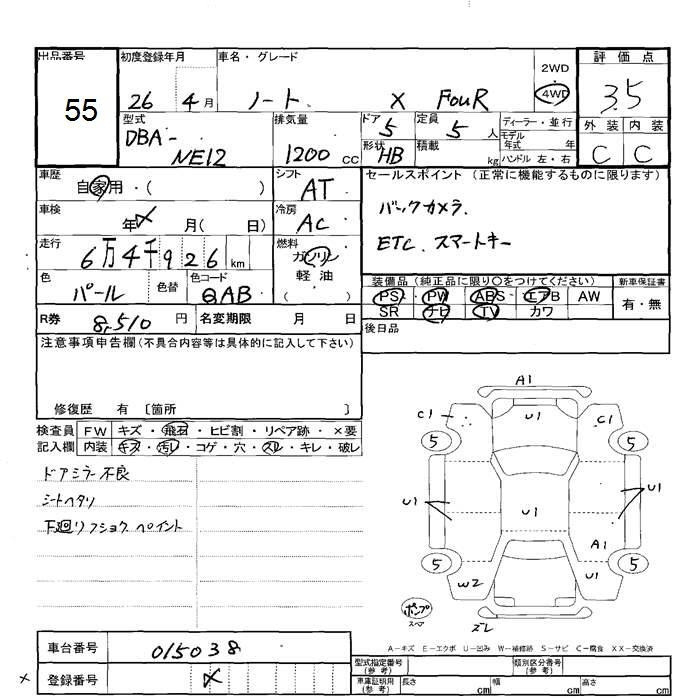 出品番号 初度登録年月 車名・グレード 2WD 評価点
55 26 4月 ノート X FouR 4WD 3.5
型式 排気量 ドア 定員 ディーラー・並行 外装 内装
DBA- NE12 1200cc 5 5人 モデル年式 年 C C
形状 HB 積載 kg ハンドル 左・右
車歴 自家用・( ) シフト AT セールスポイント (正常に機能するものに限ります)
車検 年 月( 日) 冷房 AC バックカメラ.
走行 6万4千926km 燃料 ガソリン 軽油 ( ) ETC. スマートキー
色 パール 色替 色コード QAB
装備品 (純正品に限り○をつけてください) 新車保証書
PS PW ABS エアB AW 有・無
SR ナビ TV カワ
R券 8,510円 名変期限 月 日 後日品
注意事項申告欄(不具合内容等は具体的に記入して下さい)
修復歴 有 〔箇所 〕
検査員 FW キズ・飛石・ヒビ割・リペア跡・×要
記入欄 内装 キズ・汚レ・コゲ・穴・スレ・キレ・破レ
ドアミラー不良
シートヘタリ
下廻リフショク ペイント
A1
C1 U1 C1
5 5
U1 U1 U1
A1
5 5
W2 U1
ポンプ
スペア ズレ
A-キズ E-エクボ U-凹み W-補修跡 S-サビ C-腐食 XX-交換済
車台番号 015038
型式指定番号 (参考) 類別区分番号 (参考)
× 登録番号
車庫証明用 (参考) 長さ cm 幅 cm 高さ cm